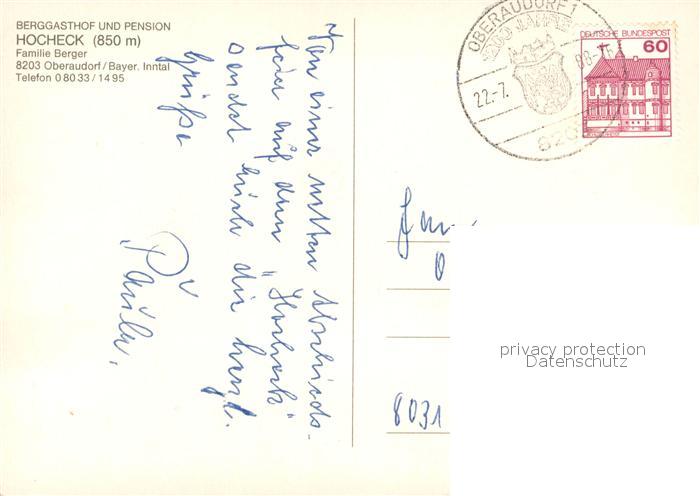 BERGGASTHOF UND PENSION
HOCHECK (850 m)
Familie Berger
8203 Oberaudorf/Bayer. Inntal
Telefon 0 80 33 / 14 95
Von einer netten Abschieds-
feier auf dem "Hocheck"
sendet euch die herzl.
Grüße
Paula.
OBERAUDORF 1
JAHRE
22.-7.
820
DEUTSCHE BUNDESPOST
60
8031
privacy protection
Datenschutz